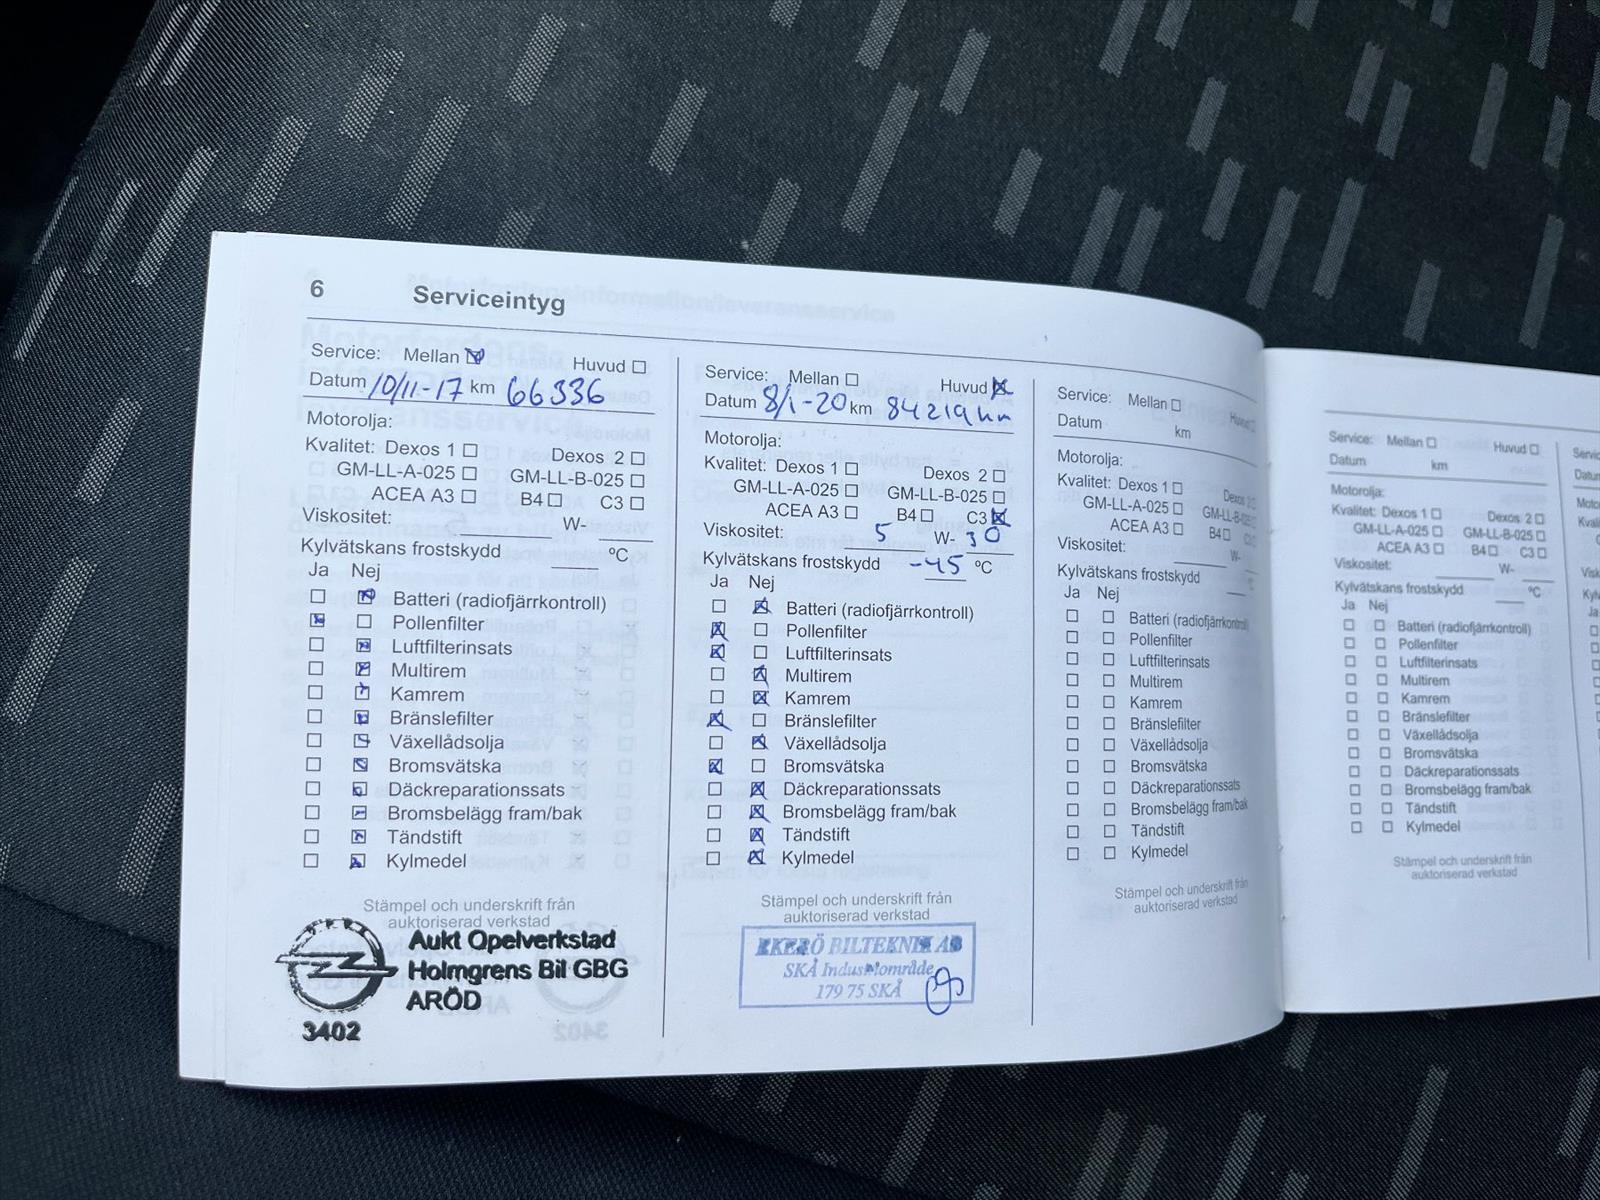 6 Serviceintyg
Service: Mellan Huvud
Datum 10/11-17 km 66336
Motorolja:
Kvalitet: Dexos 1 Dexos 2
GM-LL-A-025 GM-LL-B-025
ACEA A3 B4 C3
Viskositet: W-
Kylvätskans frostskydd °C
Ja Nej
Batteri (radiofjärrkontroll)
Pollenfilter
Luftfilterinsats
Multirem
Kamrem
Bränslefilter
Växellådsolja
Bromsvätska
Däckreparationssats
Bromsbelägg fram/bak
Tändstift
Kylmedel
Stämpel och underskrift från
auktoriserad verkstad
Aukt Opelverkstad
Holmgrens Bil GBG
ARÖD
3402
Service: Mellan Huvud
Datum 8/1-20 km 84219 km
Motorolja:
Kvalitet: Dexos 1 Dexos 2
GM-LL-A-025 GM-LL-B-025
ACEA A3 B4 C3
Viskositet: 5 W- 30
Kylvätskans frostskydd -45 °C
Ja Nej
Batteri (radiofjärrkontroll)
Pollenfilter
Luftfilterinsats
Multirem
Kamrem
Bränslefilter
Växellådsolja
Bromsvätska
Däckreparationssats
Bromsbelägg fram/bak
Tändstift
Kylmedel
Stämpel och underskrift från
auktoriserad verkstad
EKERÖ BILTEKNIK AB
SKÅ Industriområde
179 75 SKÅ
Service: Mellan Huvud
Datum km
Motorolja:
Kvalitet: Dexos 1 Dexos 2
GM-LL-A-025 GM-LL-B-025
ACEA A3 B4 C3
Viskositet: W-
Kylvätskans frostskydd °C
Ja Nej
Batteri (radiofjärrkontroll)
Pollenfilter
Luftfilterinsats
Multirem
Kamrem
Bränslefilter
Växellådsolja
Bromsvätska
Däckreparationssats
Bromsbelägg fram/bak
Tändstift
Kylmedel
Stämpel och underskrift från
auktoriserad verkstad
Service: Mellan Huvud
Datum km
Motorolja:
Kvalitet: Dexos 1 Dexos 2
GM-LL-A-025 GM-LL-B-025
ACEA A3 B4 C3
Viskositet: W-
Kylvätskans frostskydd °C
Ja Nej
Batteri (radiofjärrkontroll)
Pollenfilter
Luftfilterinsats
Multirem
Kamrem
Bränslefilter
Växellådsolja
Bromsvätska
Däckreparationssats
Bromsbelägg fram/bak
Tändstift
Kylmedel
Stämpel och underskrift från
auktoriserad verkstad